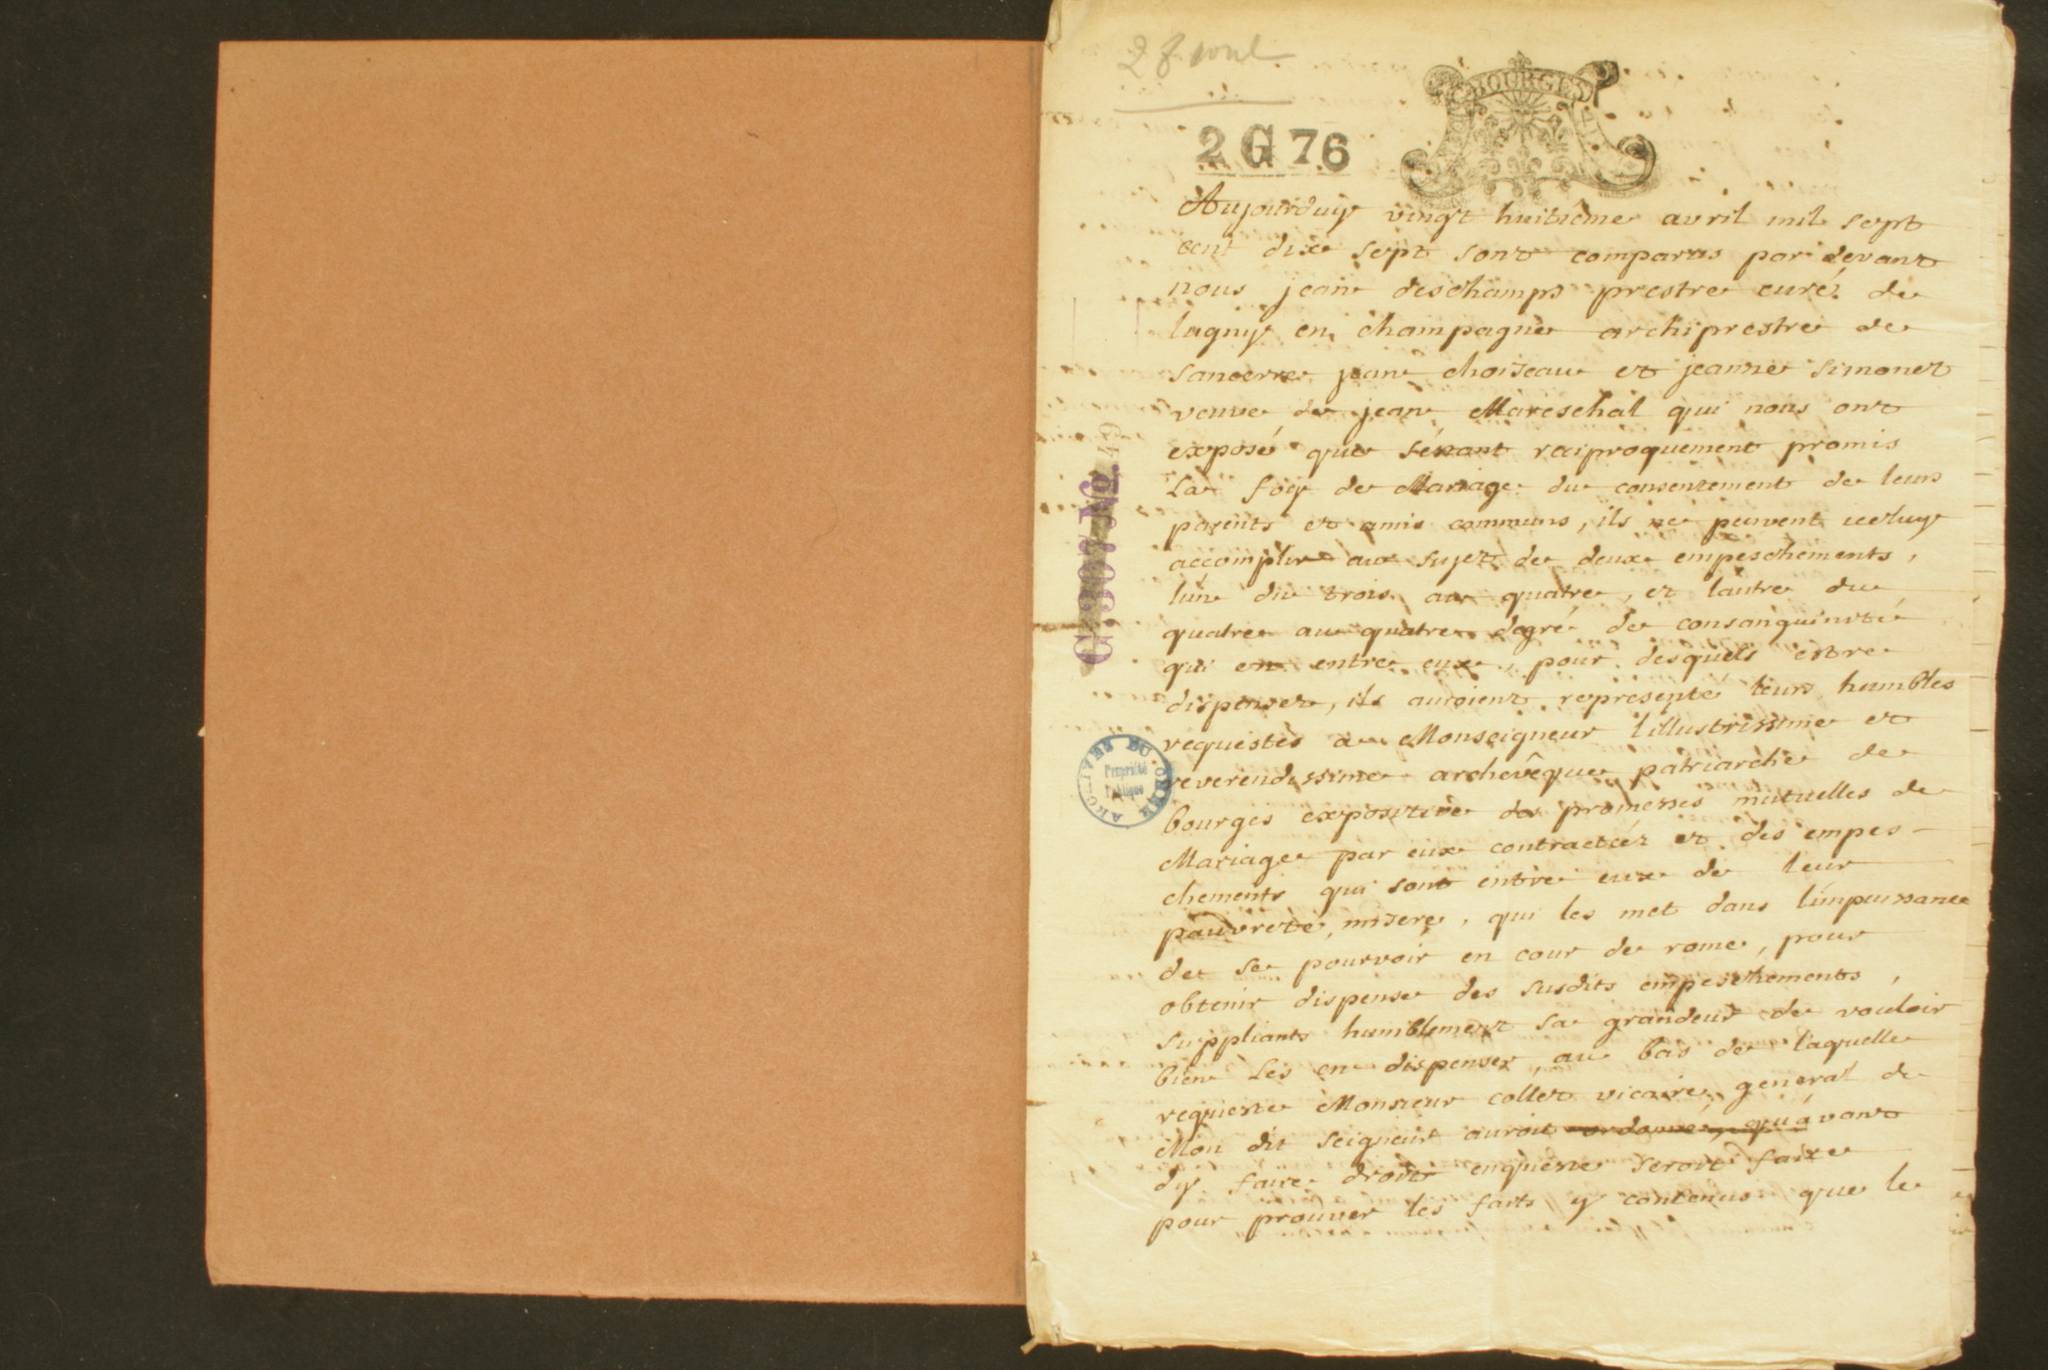 28 avril
BOURGES
2 G 76
Aujourduy vingt huitiême avril mil sept
cent dix sept sont comparus par devant
nous jean deschamps prestre curé de
lugny en champagne archiprestre de
sancerre jean choiseau et jeanne simonet
veuve de jean Mareschal qui nous ont
exposé que sétant reciproquement promis
La foy de Mariage du consentement de leurs
parents et amis communs, ils ne peuvent iceluy
accomplir au sujet de deux empeschements,
lún du trois au quatre, et lautre du
quatre au quatre degré de consanguinité
qui en entre eux, pour desquels estre
dispensez, ils auroient representé leurs humbles
requestes a Monseigneur lillustrissime et
reverendissime archevêque patriarche de
bourges expositive des promesses mutuelles de
Mariage par eux contractéez et des empes-
chements qui sont entre eux de leur
pauvreté, misere, qui les met dans límpuissance
de se pourvoir en cour de rome, pour
obtenir dispense des susdits empeschements,
suppliants humblement sa grandeur de vouloir
bien Les en dispenser, au bas de laquelle
requeste Monsieur collet vicaire general de
Mon dit seigneur auroit ordonné, quávant
dy faire droit enqueste seroit faite
pour prouver les faits y contenus que le
C. 307 No. 49
ARCHIVES DU CHER
Propriété
Publique